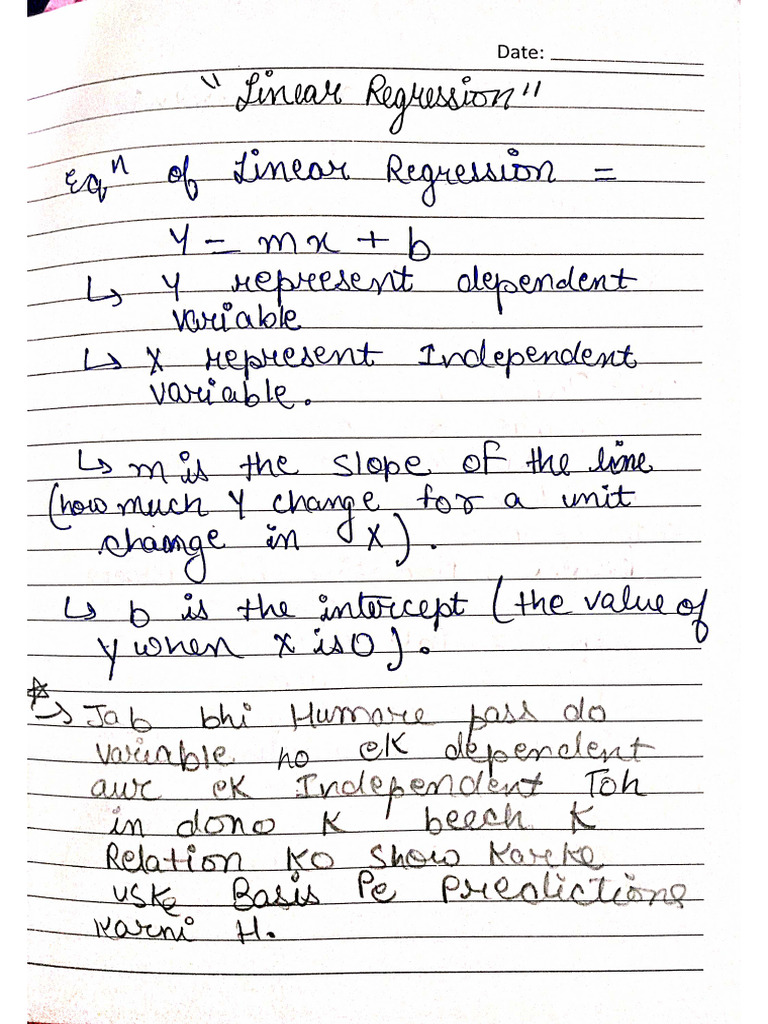 Date:
"Linear Regression"
Eqⁿ of Linear Regression =
Y = mx + b
↳ Y represent dependent
variable
↳ X represent Independent
variable.
↳ m is the slope of the line
(how much Y change for a unit
change in X).
↳ b is the intercept (the value of
y when X is 0).
☆
→ Jab bhi Humare pass do
variable ho ek dependent
awr ek Independent Toh
in dono K beech K
Relation KO Show Karke
uske Basis Pe Predictions
Karni H.